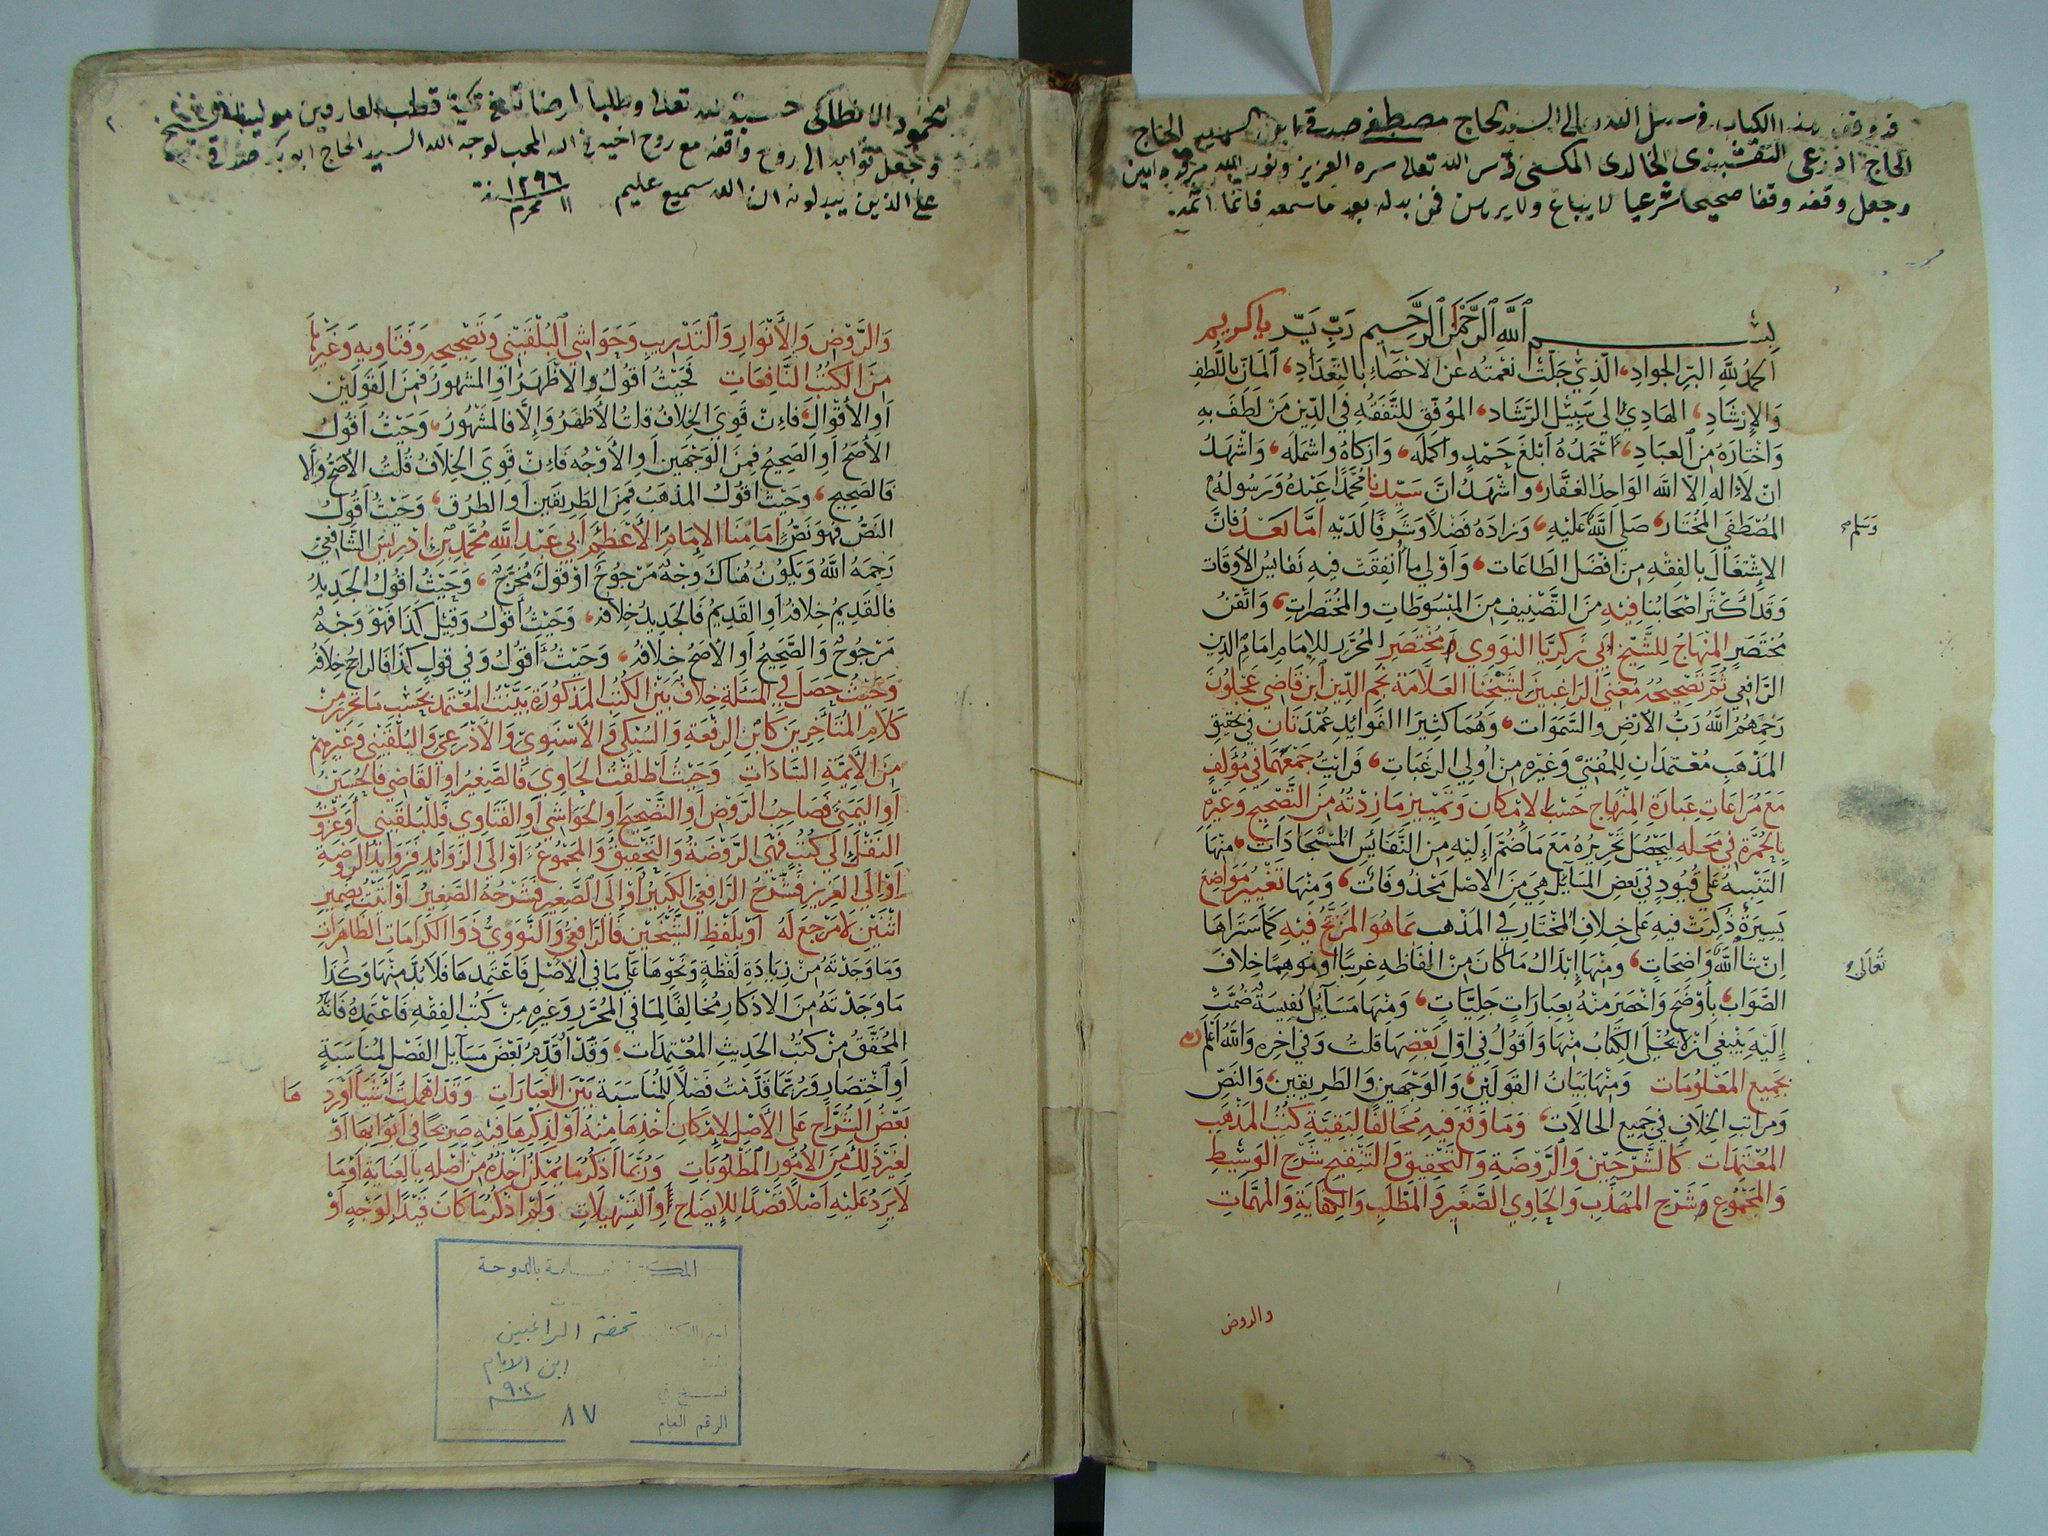 قد وقف هذا الكتاب في سبيل الله تعالى السيد الحاج مصطفى صدقي ابن السهيم الحاج
محمود الانطاكى حسبة لله تعالى وطلبا لمرضاته في تكية قطب العارفين مولينا الشيخ
الحاج النقشبندى الخالدى المكنى قدس الله تعالى سره العزيز ونور الله مرقده امين
وجعل ثوابه الى روح واقفه مع روح اخيه في الله المحب لوجه الله السيد الحاج ابو بكر صدقي
وجعل وقفه وقفا صحيحا شرعيا لا يباع ولا يرهن فمن بدله بعد ما سمعه فانما اثمه
على الذين يبدلونه ان الله سميع عليم ١١ محرم سنة ١٢٩٦
بسم الله الرحمن الرحيم رب يسر يا كريم
الحمد لله البر الجواد الذي جلت نعمته عن الاحصاء بالتعداد المان باللطف
والإرشاد الهادي الى سبيل الرشاد الموفق للتفقه في الدين من لطف به
واختاره من العباد احمده ابلغ حمد واكمله وازكاه واشمله واشهد
ان لا اله الا الله الواحد الغفار واشهد ان سيدنا محمدا عبده ورسوله
المصطفى المختار صلى الله عليه وزاده فضلا وشرفا لديه اما بعد فان
وسلم
الاشتغال بالفقه من افضل الطاعات واولى ما أنفقت فيه نفايس الأوقات
وقد اكثر اصحابنا فيه من التصنيف من المبسوطات والمختصرات واتقن
مختصر المنهاج للشيخ ابي زكريا النووي مختصر المحرر للإمام امام الدين
الرافعي ثم تصحيحه مغني الراغبين لشيخنا العلامة نجم الدين ابن قاضي عجلون
رحمهم الله رب الأرض والسموات وهما كثيرا الفوايد عمدتان في تحقيق
المذهب معتمدان للمفتي وغيره من اولي الرغبات فرايت جمعهما في مؤلف
مع مراعات عبارة المنهاج حسب الإمكان وتمييز ما زدته من التصحيح وغيره
بالحمرة في محله ليحصل تحريره مع ما ضم إليه من النفايس المستجادات منها
التنبيه على قيود في بعض المسايل هي من الاصل محذوفات ومنها تغيير مواضع
يسيرة ذكرت فيه على خلاف المختار في المذهب بما هو المرجح فيه كما ستراها
ان شا الله واضحات ومنها إبدال ما كان من الفاظه غريبا او موهما خلاف
تعالى
الصواب بأوضح واخصر منه بعبارات جليات ومنها مسايل نفيسة ضمت
إليه ينبغي ان لا يخلى الكتاب منها واقول في اول بعضها قلت وفي اخره والله اعلم
بجميع المعلومات ومنها بيان القولين والوجهين والطريقين والنص
ومراتب الخلاف في جميع الحالات وما وقع فيه مخالفا لبقية كتب المذهب
المعتمدات كالشرحين والروضة والتحقيق والتنقيح شرح الوسيط
والمجموع شرح المهذب والحاوي الصغير والمطلب والكفاية والمهمات
والروض
والروض والأنوار والتدريب وحواشي البلقيني وتصحيحه وفتاويه وغيرها
من الكتب النافعات فحيث اقول الاظهر او المشهور فمن القولين
او الأقوال فإن قوي الخلاف قلت الأظهر وإلا فالمشهور وحيث اقول
الأصح او الصحيح فمن الوجهين او الأوجه فإن قوي الخلاف قلت الأصح وإلا
فالصحيح وحيث اقول المذهب فمن الطريقين او الطرق وحيث اقول
النص فهو نص إمامنا الإمام الأعظم أبي عبد الله محمد بن ادريس الشافعي
رحمه الله ويكون هناك وجه مرجوح او قول مخرج وحيث اقول الجديد
فالقديم خلافه او القديم فالجديد خلافه وحيث أقول وقيل كذا فهو وجه
مرجوح والصحيح او الأصح خلافه وحيث أقول وفي قول كذا فالراجح خلافه
وحيث حصل في المسئلة خلاف بين الكتب المذكورة بينت المعتمد بحسب ما تحرر من
كلام المتأخرين كابن الرفعة والسبكي والأسنوي والأذرعي والبلقيني وغيرهم
من الأيمة السادات وحيث اطلقت الحاوي فالصغير او القاضي فالحسين
او اليمني فصاحب الروض او التصحيح او الحواشي او الفتاوي فللبلقيني او عزوت
النقل الى كتب فهي الروضة والتحقيق والمجموع او الى الزوايد فزوايد الروضة
او الى العزيز فشرح الرافعي الكبير او الى الصغير فشرحه الصغير او اتيت بضمير
اثنين لا مرجع له او بلفظ الشيخين فالرافعي والنووي ذوا الكرامات الظاهرات
وما وجدته من زيادة لفظة ونحوها على ما في الاصل فاعتمدها فلا بد منها وكذا
ما وجدته من الاذكار مخالفا لما في المحرر وغيره من كتب الفقه فاعتمده فانه
المحقق من كتب الحديث المعتمدات وقد اقدم بعض مسايل الفصل لمناسبة
او اختصار وربما قدمت فصلا للمناسبة بين العبارات وقد اهملت اشيا اورد ها
بعض الشراح على الأصل لإمكان اخذها منه او لذكرها فيه صريحا في ابوابها او
لغير ذلك من الأمور المطلوبات وربما اذكر ما يمكن اخذه من اصله بالعناية او ما
لا يرد عليه اصلا قصدا للإيضاح او التسهيلات ولم اذكر ما كان قيدا لوجه او
المكتبة العامة بالدوحة
تحفة الراغبين
ابن الامام
٩٠٢
الرقم العام ٨٧